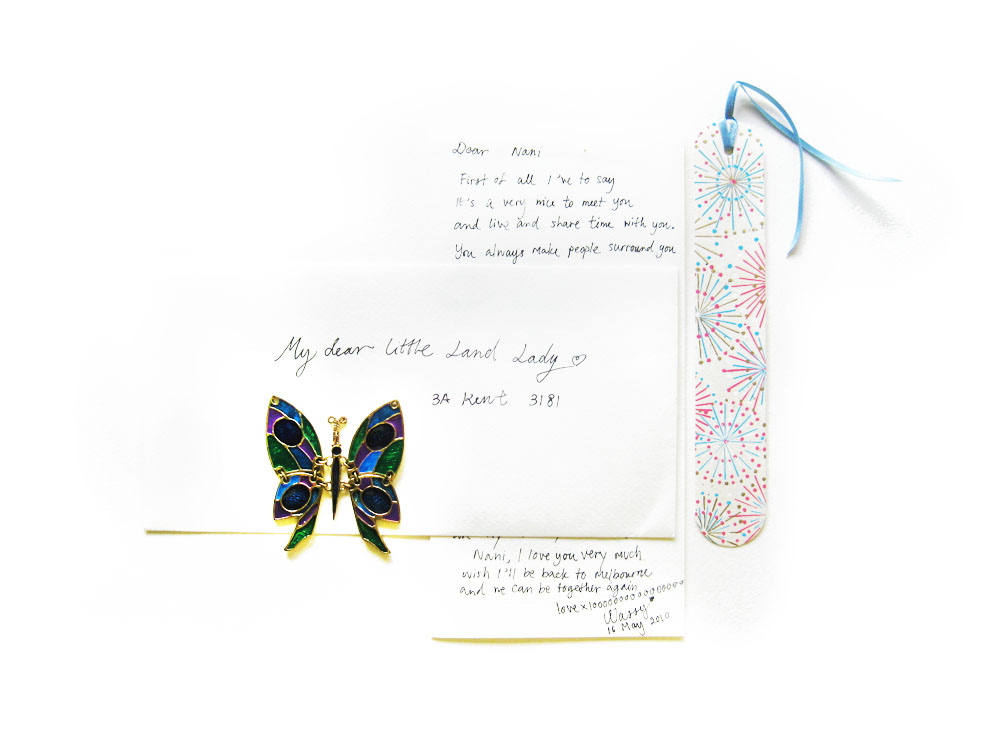 Dear Nani
First of all I've to say
It's a very nice to meet you
and live and share time with you.
You always make people surround you
My dear Little Land Lady ♡
3A Kent 3181
Nani, I love you very much
wish I'll be back to Melbourne
and we can be together again
love x 10000000000000000
Wassy
16 May 2010